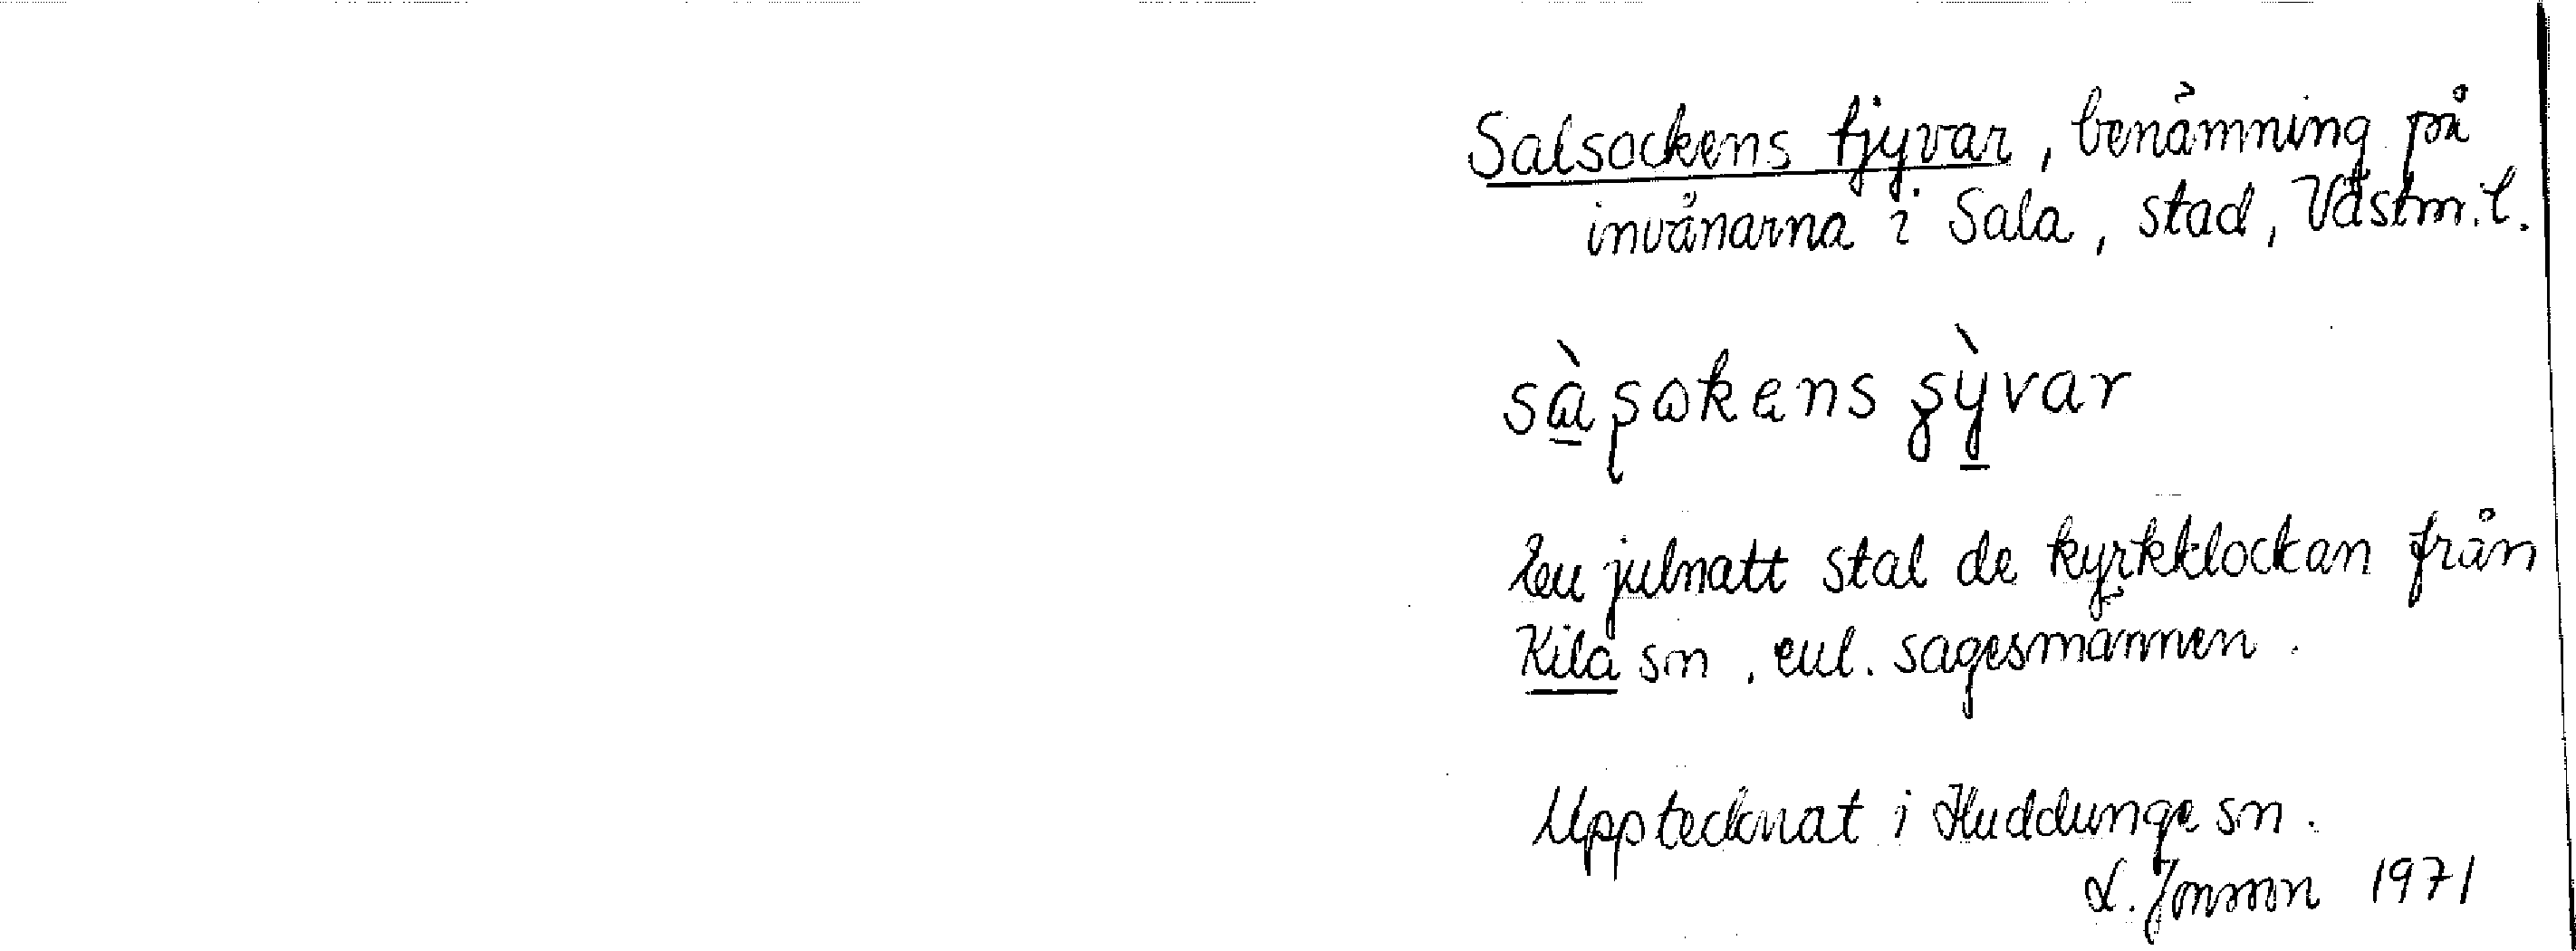 Salsockens tjyvar, benämning på
invånarna i Sala, stad, Västm. l.
En julnatt stal de kyrkklockan från
Kila sn, enl. sagesmannen.
Upptecknat i Huddunge sn.
L. Jonson 1971